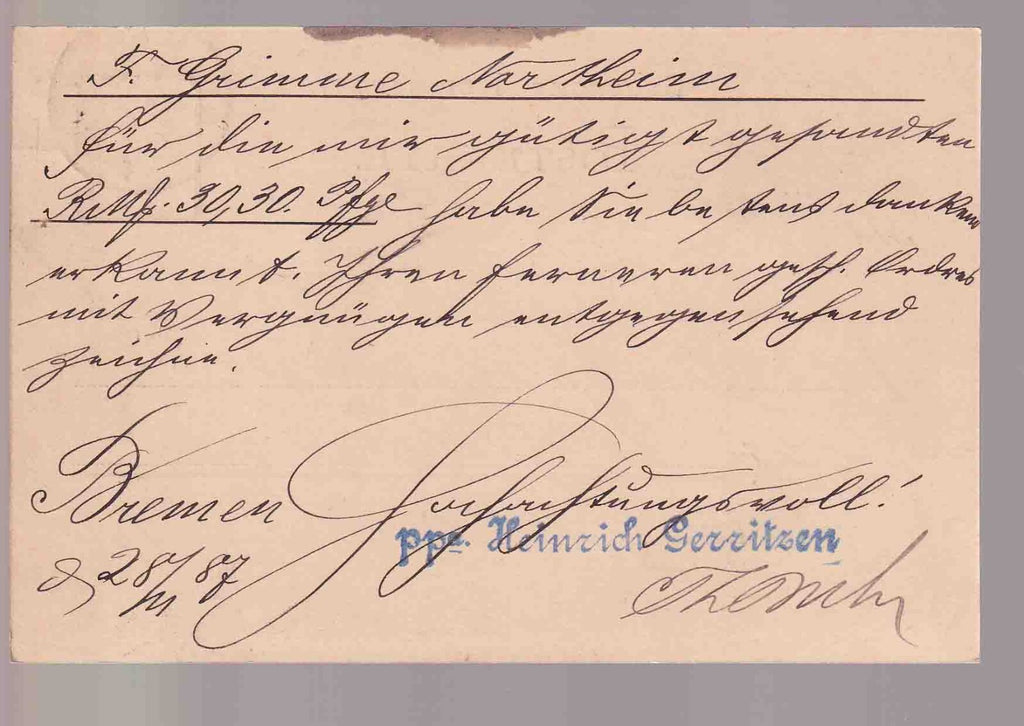 F. Grimme Northeim
für die mir gütigst gesandten
RMk. 30,30. Pfge habe Sie bestens dankend
erkannt. Ihren ferneren gesch. Ordres
mit Vergnügen entgegensehend
zeichne.
Bremen Hochachtungsvoll!
ppa. Heinrich Gerritzen
d 28/III 87